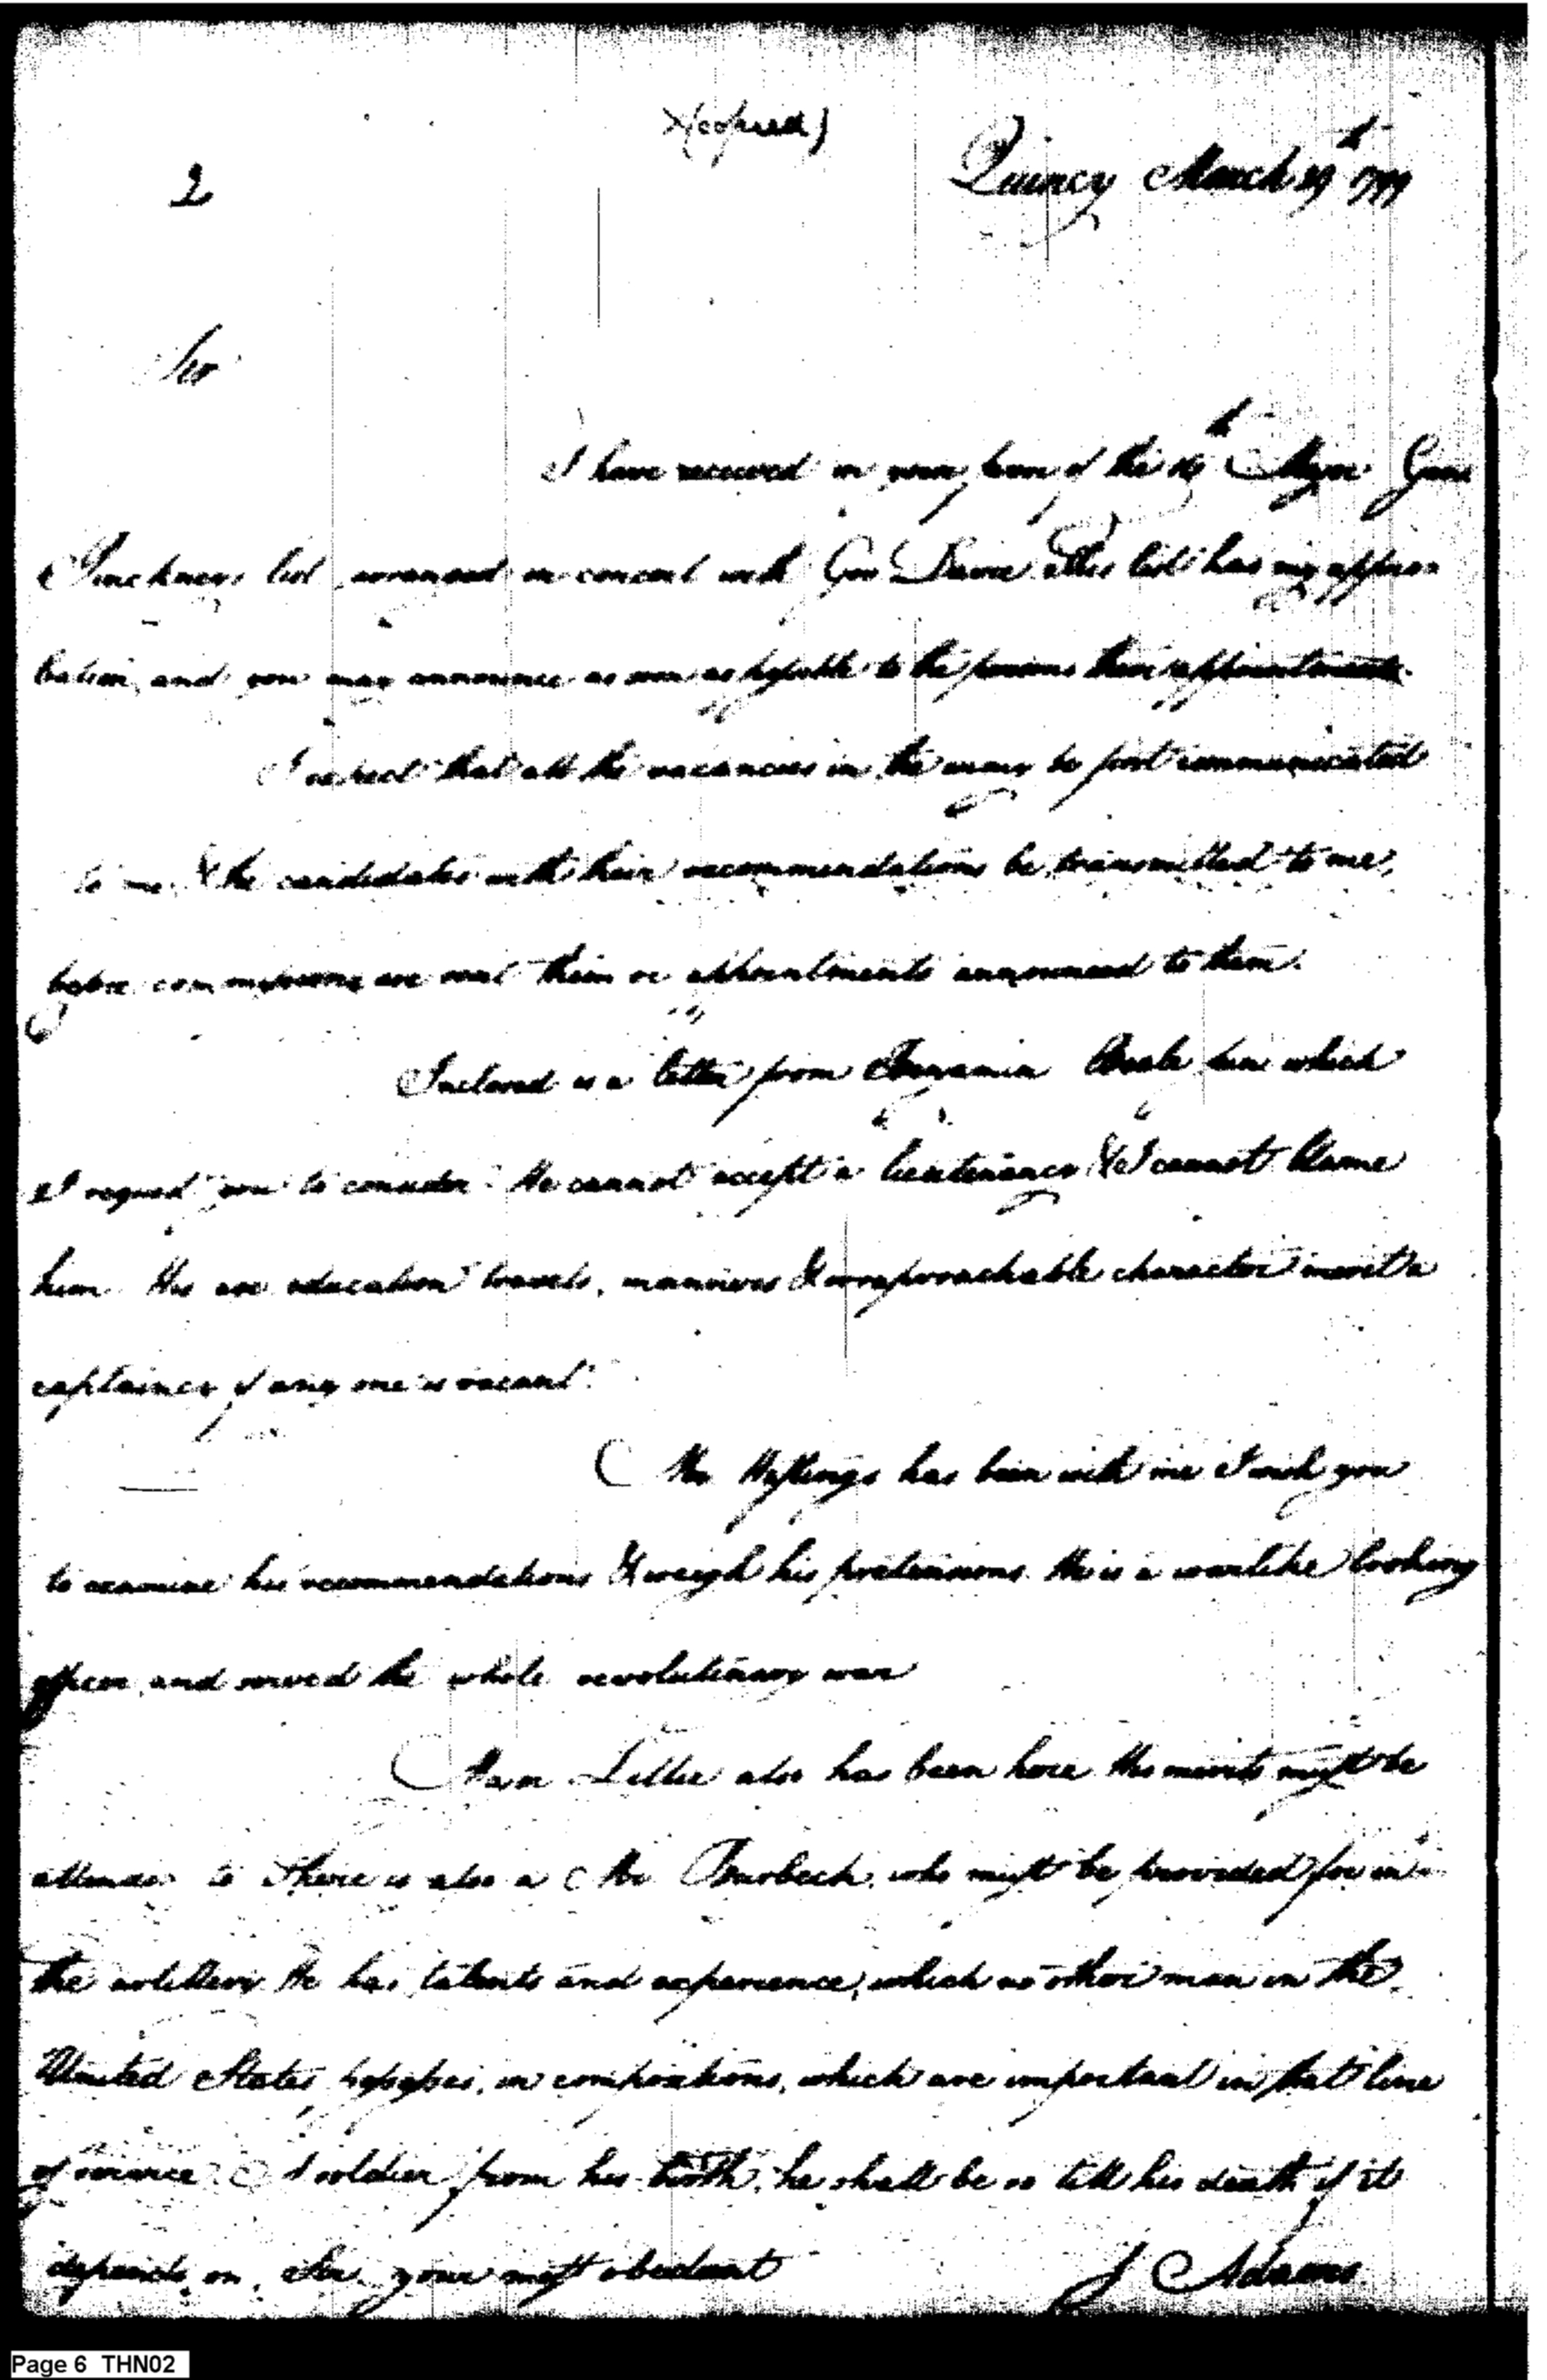 (copied)
2
Quincy March 29th 1799
Sir
I have received in your favor of the 16th Major Genl
Pinckneys list, arranged in concert with Gov Davie. This list has my appro-
bation, and you may announce as soon as possible to the persons their appointments.
I expect that all the vacancies in the army be first communicated
to me, & the candidates with their recommendations be transmitted to me,
before commissions are sent them or appointments announced to them.
Inclosed is a letter from Benjamin Beale Jun which
I request you to consider. He cannot accept a lieutenancy, & I cannot blame
him. His age education travels, manners & irreproachable character merit a
captaincy if any one is vacant.
Mr Hastings has been with me I wish you
to examine his recommendations & weigh his pretensions. He is a warlike looking
officer, and served the whole revolutionary war
Major Lillie also has been here His merits must be
attended to There is also a Mr Burbeck, who must be provided for in
the artillery He has talents and experience, which no other man in the
United States possesses, in compositions, which are important in that line
of service. A soldier from his birth, he shall be so till his death if it
depends, on, Sir, your most obedient
J Adams
Page 6 THN02